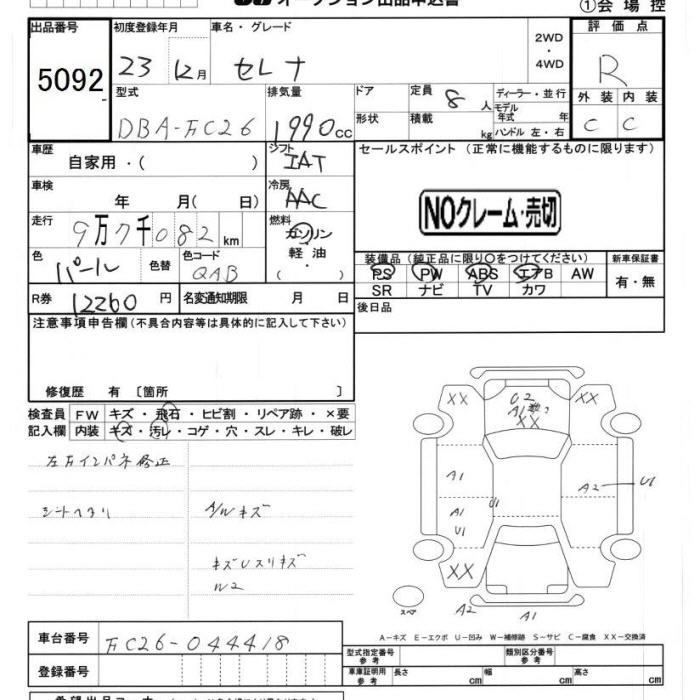 オークション出品申込書
①会場控
出品番号 初度登録年月 車名・グレード 評価点
5092 23 12月 セレナ 2WD・4WD R
型式 排気量 ドア 定員 8 人 ディーラー・並行 外装 内装
DBA-FC26 1990cc 形状 積載 kg モデル年式 年 ハンドル 左・右 C C
車歴 自家用・( ) シフト IAT セールスポイント (正常に機能するものに限ります)
車検 年 月( 日) 冷房 AAC
NOクレーム・売切
走行 9万7千082km 燃料 ガソリン
軽油
( )
色 パール 色替 色コード QAB
装備品(純正品に限り○をつけてください) 新車保証書
PS PW ABS エアB AW 有・無
SR ナビ TV カワ
R券 12260円 名変通知期限 月 日 後日品
注意事項申告欄(不具合内容等は具体的に記入して下さい)
修復歴 有 〔箇所 〕
検査員 FW キズ・飛石・ヒビ割・リペア跡・×要
記入欄 内装 キズ・汚レ・コゲ・穴・スレ・キレ・破レ
左右インパネ修正
シートヘタリ A/Wキズ
キズUスリキズ
W2
XX U2 XX
A1
XX
A1 A2 U1
A1 U1
U1
XX
スペア A2 A1
A-キズ E-エクボ U-凹み W-補修跡 S-サビ C-腐食 XX-交換済
車台番号 FC26-044418
登録番号
型式指定番号 参考 類別区分番号 参考
車庫証明用 参考 長さ cm 幅 cm 高さ cm